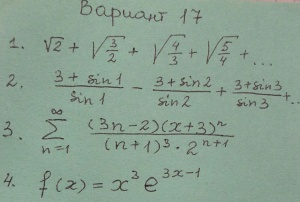 Вариант 17
1. √2 + √(3/2) + √(4/3) + √(5/4) + ...
2. (3 + sin1)/(sin1) - (3 + sin2)/(sin2) + (3 + sin3)/(sin3) + ...
3. ∑_{n=1}^{∞} ((3n-2)(x+3)^n)/((n+1)^3 · 2^{n+1})
4. f(x) = x^3 e^{3x-1}